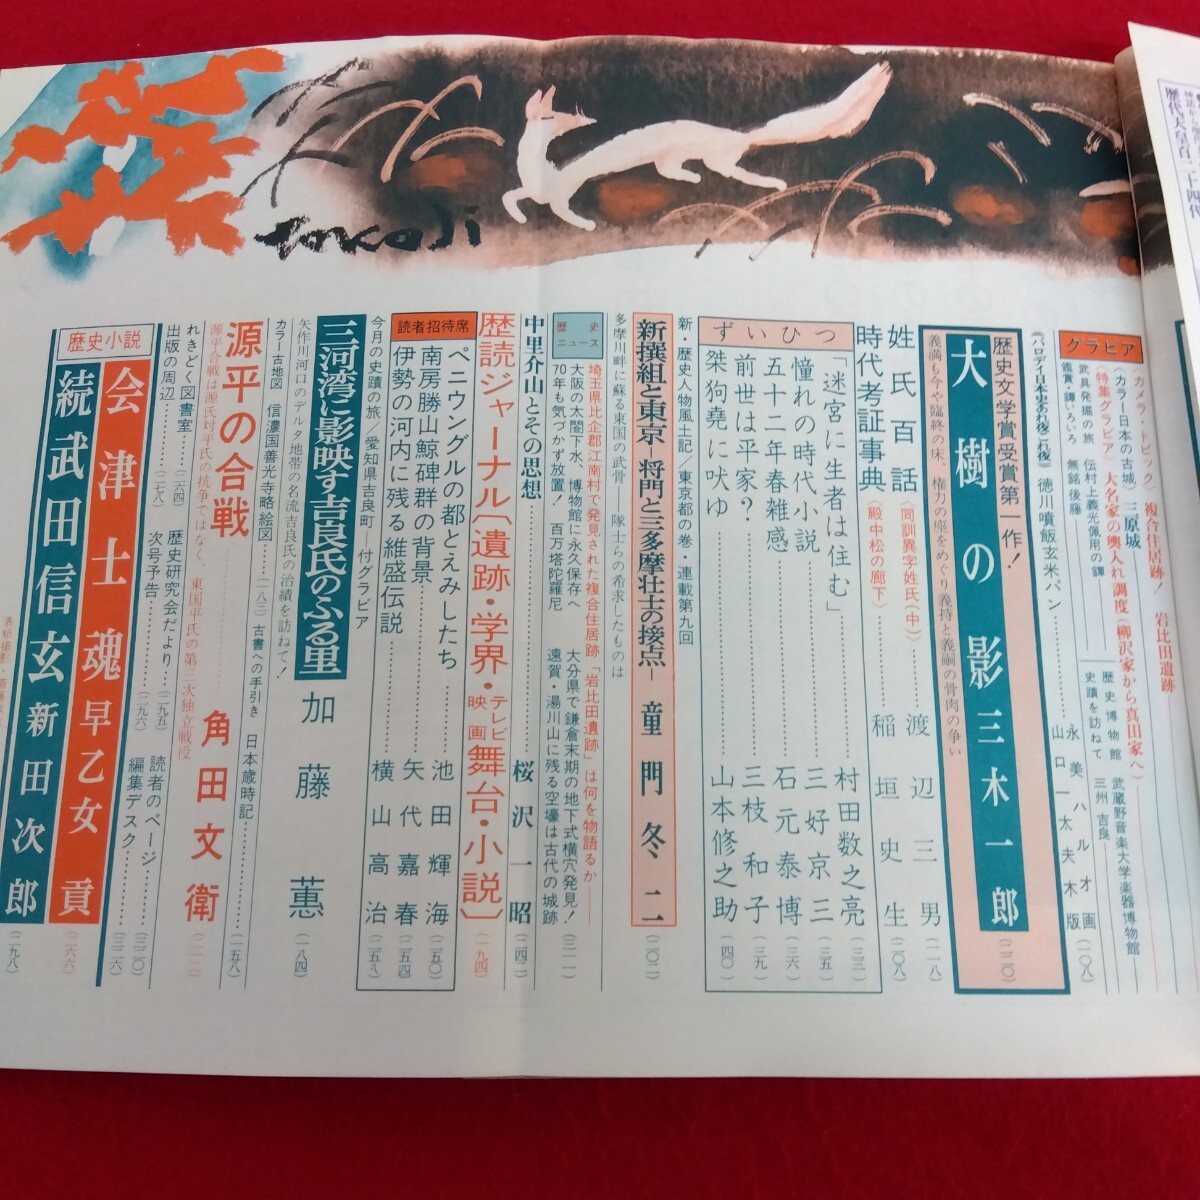 歴代天皇百二十四代
Tokoji
グラビア
(カメラ・トピック) 複合住居跡! 岩比田遺跡
(カラー日本の古城) 三原城
(特集グラビア) 大名家の輿入れ調度(柳沢家から真田家へ)
武具発掘の旅 伝村上義光佩用の鐔
歴史博物館 武蔵野音楽大学楽器博物館
鑑賞・鐔いろいろ 無銘後藤
史蹟を訪ねて 三州 吉良
永美ハルオ画(一〇八)
徳川噴飯玄米パン
山口一太夫木版
歴史文学賞受賞第一作!
大樹の影 三木一郎(二二〇)
義満も今や臨終の床、権力の座をめぐり義持と義嗣の骨肉の争い
姓氏百話(同訓異字姓氏(中)) 渡辺三男(二一八)
時代考証事典(殿中松の廊下) 稲垣史生(二〇八)
ずいひつ
「迷宮に生者は住む」 村田数之亮(三三)
憧れの時代小説 三好京三(三五)
五十二年春雑感 石元泰博(三六)
前世は平家? 三枝和子(三九)
桀狗堯に吠ゆ 山本修之助(四〇)
新・歴史人物風土記/東京都の巻・連載第九回
新撰組と東京―将門と三多摩壮士の接点― 童門冬二(二〇二)
多摩川畔に蘇る東国の武骨―隊士らの希求したものは
歴史ニュース
埼玉県比企郡江南村で発見された複合住居跡「岩比田遺跡」は何を物語るか
大阪の太閤下水、博物館に永久保存へ 大分県で鎌倉末期の地下式横穴発見!
70年も気づかず放置! 百万塔陀羅尼 遠賀・湯川山に残る空壕は古代の城跡(三二一)
中里介山とその思想 桜沢一昭(二四二)
歴読ジャーナル〔遺跡・学界・テレビ映画 舞台・小説〕(一九四)
読者招待席
ペニウングルの都とえみしたち 池田輝海(二五〇)
南房勝山鯨碑群の背景 矢代嘉春(二五四)
伊勢の河内に残る維盛伝説 横山高治(二五八)
今月の史蹟の旅 愛知県吉良町―付グラビア
三河湾に影映す吉良氏のふる里 加藤蕙(一八四)
矢作川河口のデルタ地帯の名流吉良氏の治績を訪ねて!
カラー古地図 信濃国善光寺略絵図(一八三) 古書への手引き 日本歳時記(一五八)
源平の合戦 角田文衛(二二二)
源平合戦は源氏対平氏の抗争ではなく、東国平氏の第二次独立戦役
れきどく図書室(二六四) 歴史研究会だより(二九五) 読者のページ(三二〇)
出版の周辺(二七八) 次号予告(二九六) 編集デスク(三二六)
歴史小説
会津士魂 早乙女貢(二六六)
続武田信玄 新田次郎(二九八)